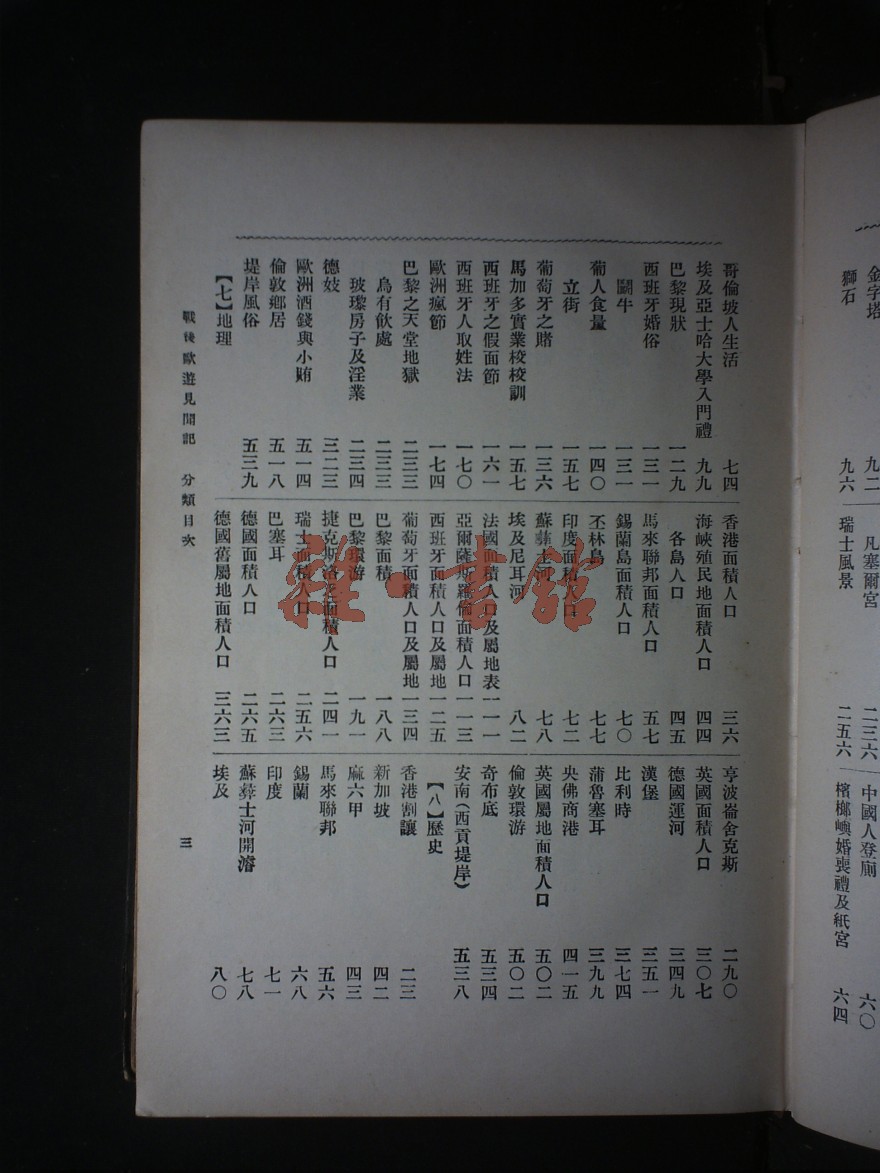 哥倫坡人生活 七四
埃及亞士哈大學入門禮 九九
巴黎現狀 一二九
西班牙婚俗 一三一
鬭牛 一三一
葡人食量 一四〇
立街 一五七
葡萄牙之賭 一三六
馬加多實業校校訓 一五七
西班牙之假面節 一六一
西班牙人取姓法 一七〇
歐洲瘋節 一七四
巴黎之天堂地獄 二三三
烏有飲處 二三三
玻璨房子及淫業 二三四
德妓 三二三
歐洲酒錢與小賄 五一四
倫敦鄉居 五一八
堤岸風俗 五三九
【七】地理
香港面積人口 三六
海峽殖民地面積人口 四四
各島人口 四五
馬來聯邦面積人口 五七
錫蘭島面積人口 七〇
丕林島 七七
印度面積人口 七二
蘇彝士河 七八
埃及尼耳河 八二
法國面積人口及屬地表 一一一
亞爾薩斯羅倫面積人口 一一三
西班牙面積人口及屬地 一二五
葡萄牙面積人口及屬地 一三四
巴黎面積 一八八
巴黎環游 一九一
捷克斯洛伐面積人口 二四一
瑞士面積人口 二五六
巴塞耳 二六三
德國面積人口 二六五
德國舊屬地面積人口 三六三
亨波崙舍克斯 二九〇
英國面積人口 三〇七
德國運河 三四九
漢堡 三五一
比利時 三七四
蒲魯塞耳 三九九
央佛商港 四一五
英國屬地面積人口 五〇二
倫敦環游 五〇二
奇布底 五三四
安南(西貢堤岸) 五三八
【八】歷史
香港割讓 二三
新加坡 四二
麻六甲 四三
馬來聯邦 五六
錫蘭 六八
印度 七一
蘇彝士河開濬 七八
埃及 八〇
戰後歐遊見聞記 分類目次
三
金字塔 九二
獅石 九六
凡塞爾宮 二三六
瑞士風景 二五六
中國人登廁 六〇
檳榔嶼婚喪禮及紙宮 六四
雜·書館